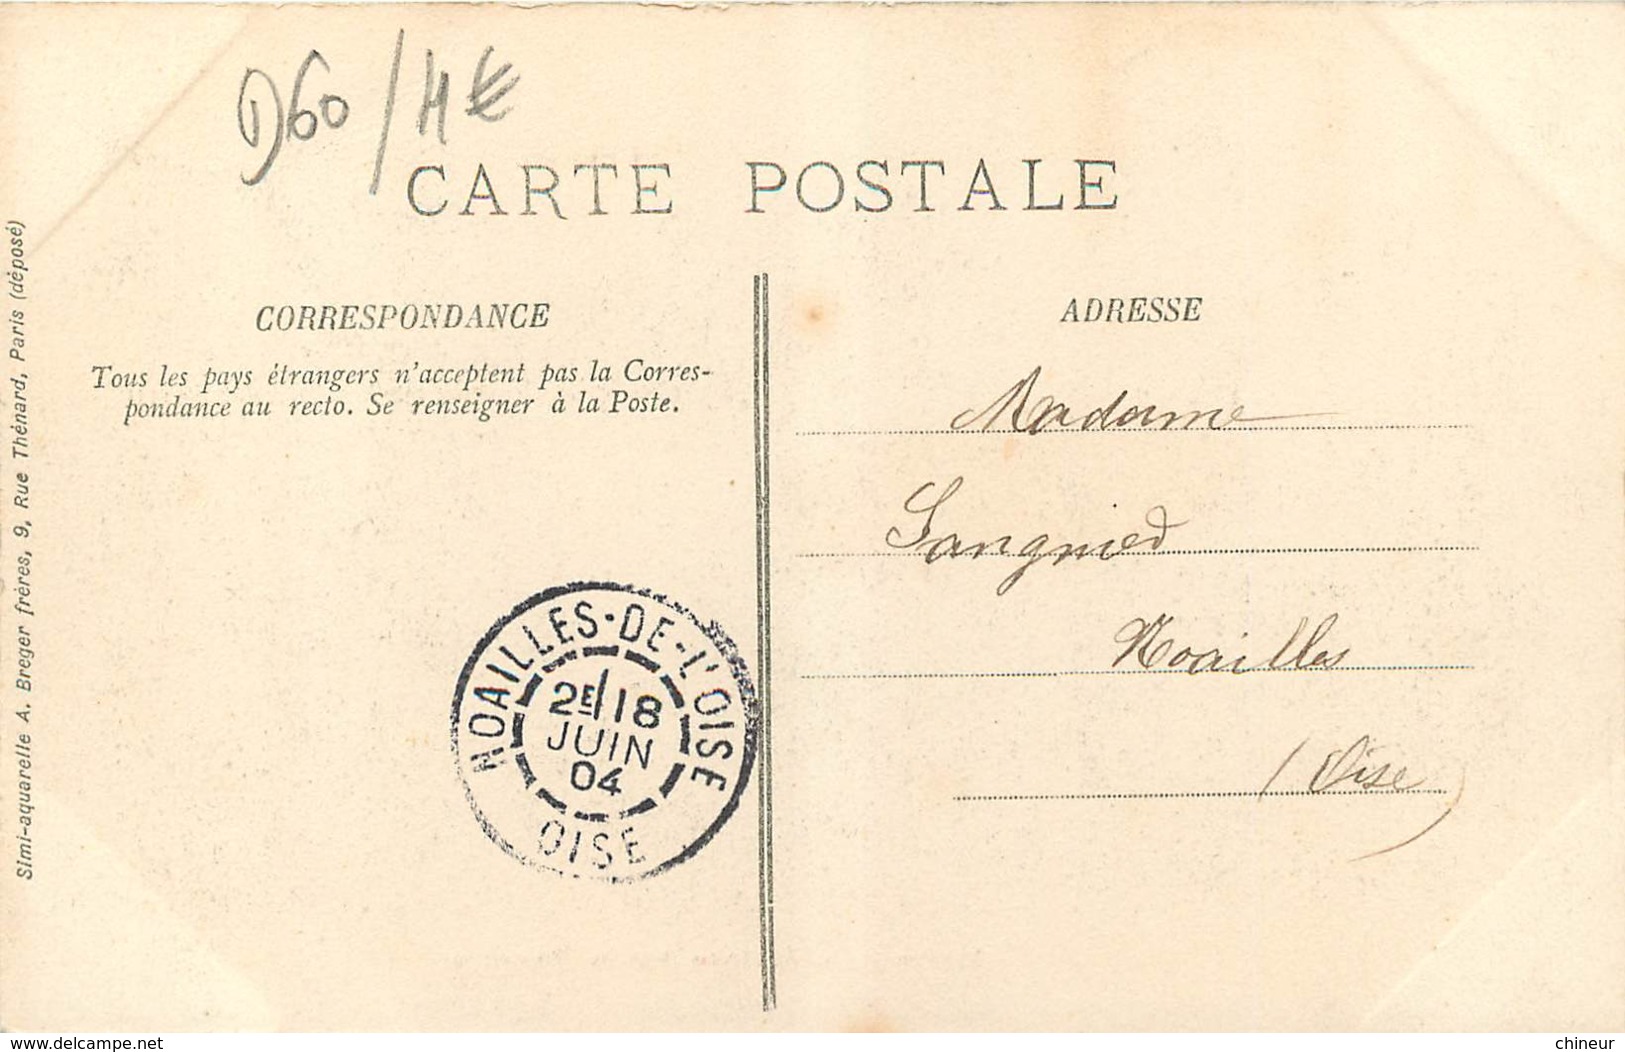 D60/4€
CARTE POSTALE
CORRESPONDANCE
Tous les pays étrangers n'acceptent pas la Corres-
pondance au recto. Se renseigner à la Poste.
ADRESSE
Madame
Noailles
(Oise)
NOAILLES-DE-L'OISE
2E/18
JUIN
04
OISE
Simi-aquarelle A. Breger frères, 9, Rue Thénard, Paris (déposé)
www.delcampe.net
chineur